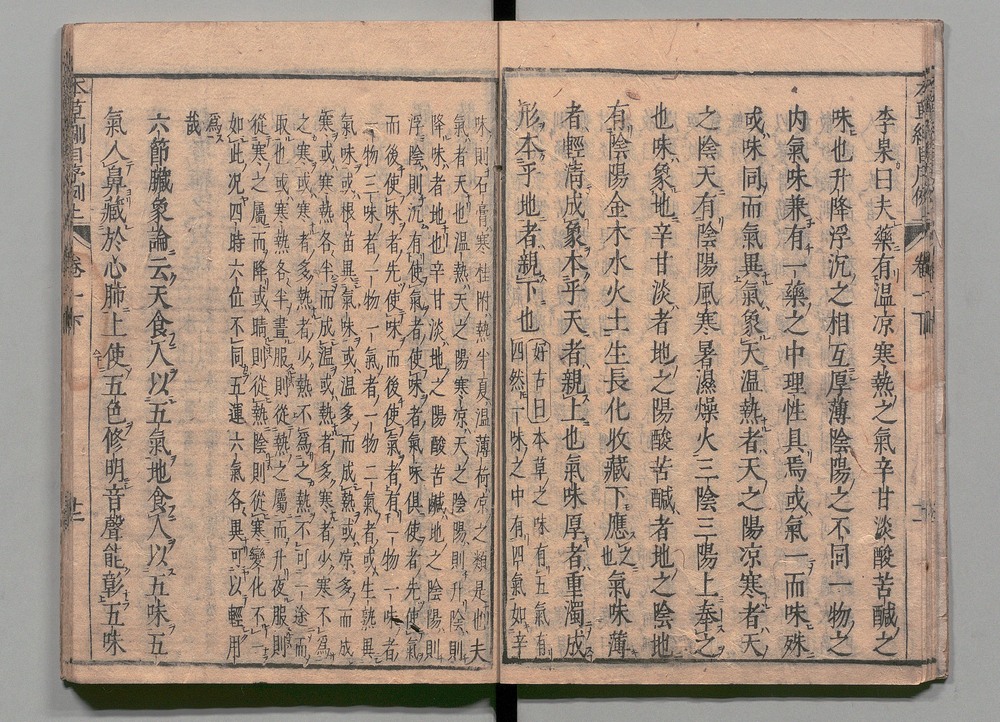 李杲曰夫藥有温凉寒熱之氣辛甘淡酸苦鹹之
味也升降浮沉之相互厚薄陰陽之不同一物之
内氣味兼有一藥之中理性具焉或氣一而味殊
或味同而氣異氣象天温熱者天之陽凉寒者天
之陰天有陰陽風寒暑濕燥火三陰三陽上奉之
也味象地辛甘淡者地之陽酸苦鹹者地之陰地
有陰陽金木水火土生長化收藏下應之也氣味薄
者輕淸成象本乎天者親上也氣味厚者重濁成
形本乎地者親下也
好古曰本草之味有五氣有
四然一味之中有四氣如辛
味則石膏寒桂附熱半夏温薄荷凉之類是也夫
氣者天也温熱天之陽寒凉天之陰陽則升陰則
降味者地也辛甘淡地之陽酸苦鹹地之陰陽則
浮陰則沉有使氣者使味者氣味俱使者先使氣
而後使味者先使味而後使氣者有一物一味者
一物三味者一物一氣者一物二氣者或生熟異
氣味或根苗異氣味或温多而成熱或凉多而成
寒或寒熱各半而成温或熱者多寒者少寒不爲
之寒或寒者多熱者少熱不爲之熱不可一途而
取也或寒熱各半晝服則從熱之屬而升夜服則
從寒之屬而降或晴則從熱陰則從寒變化不一
如此况四時六位不同五運六氣各異可以輕用
爲
哉
六節臟象論云天食人以五氣地食人以五味五
氣入鼻藏於心肺上使五色修明音聲能彰五味
本草綱目序例上
卷一下